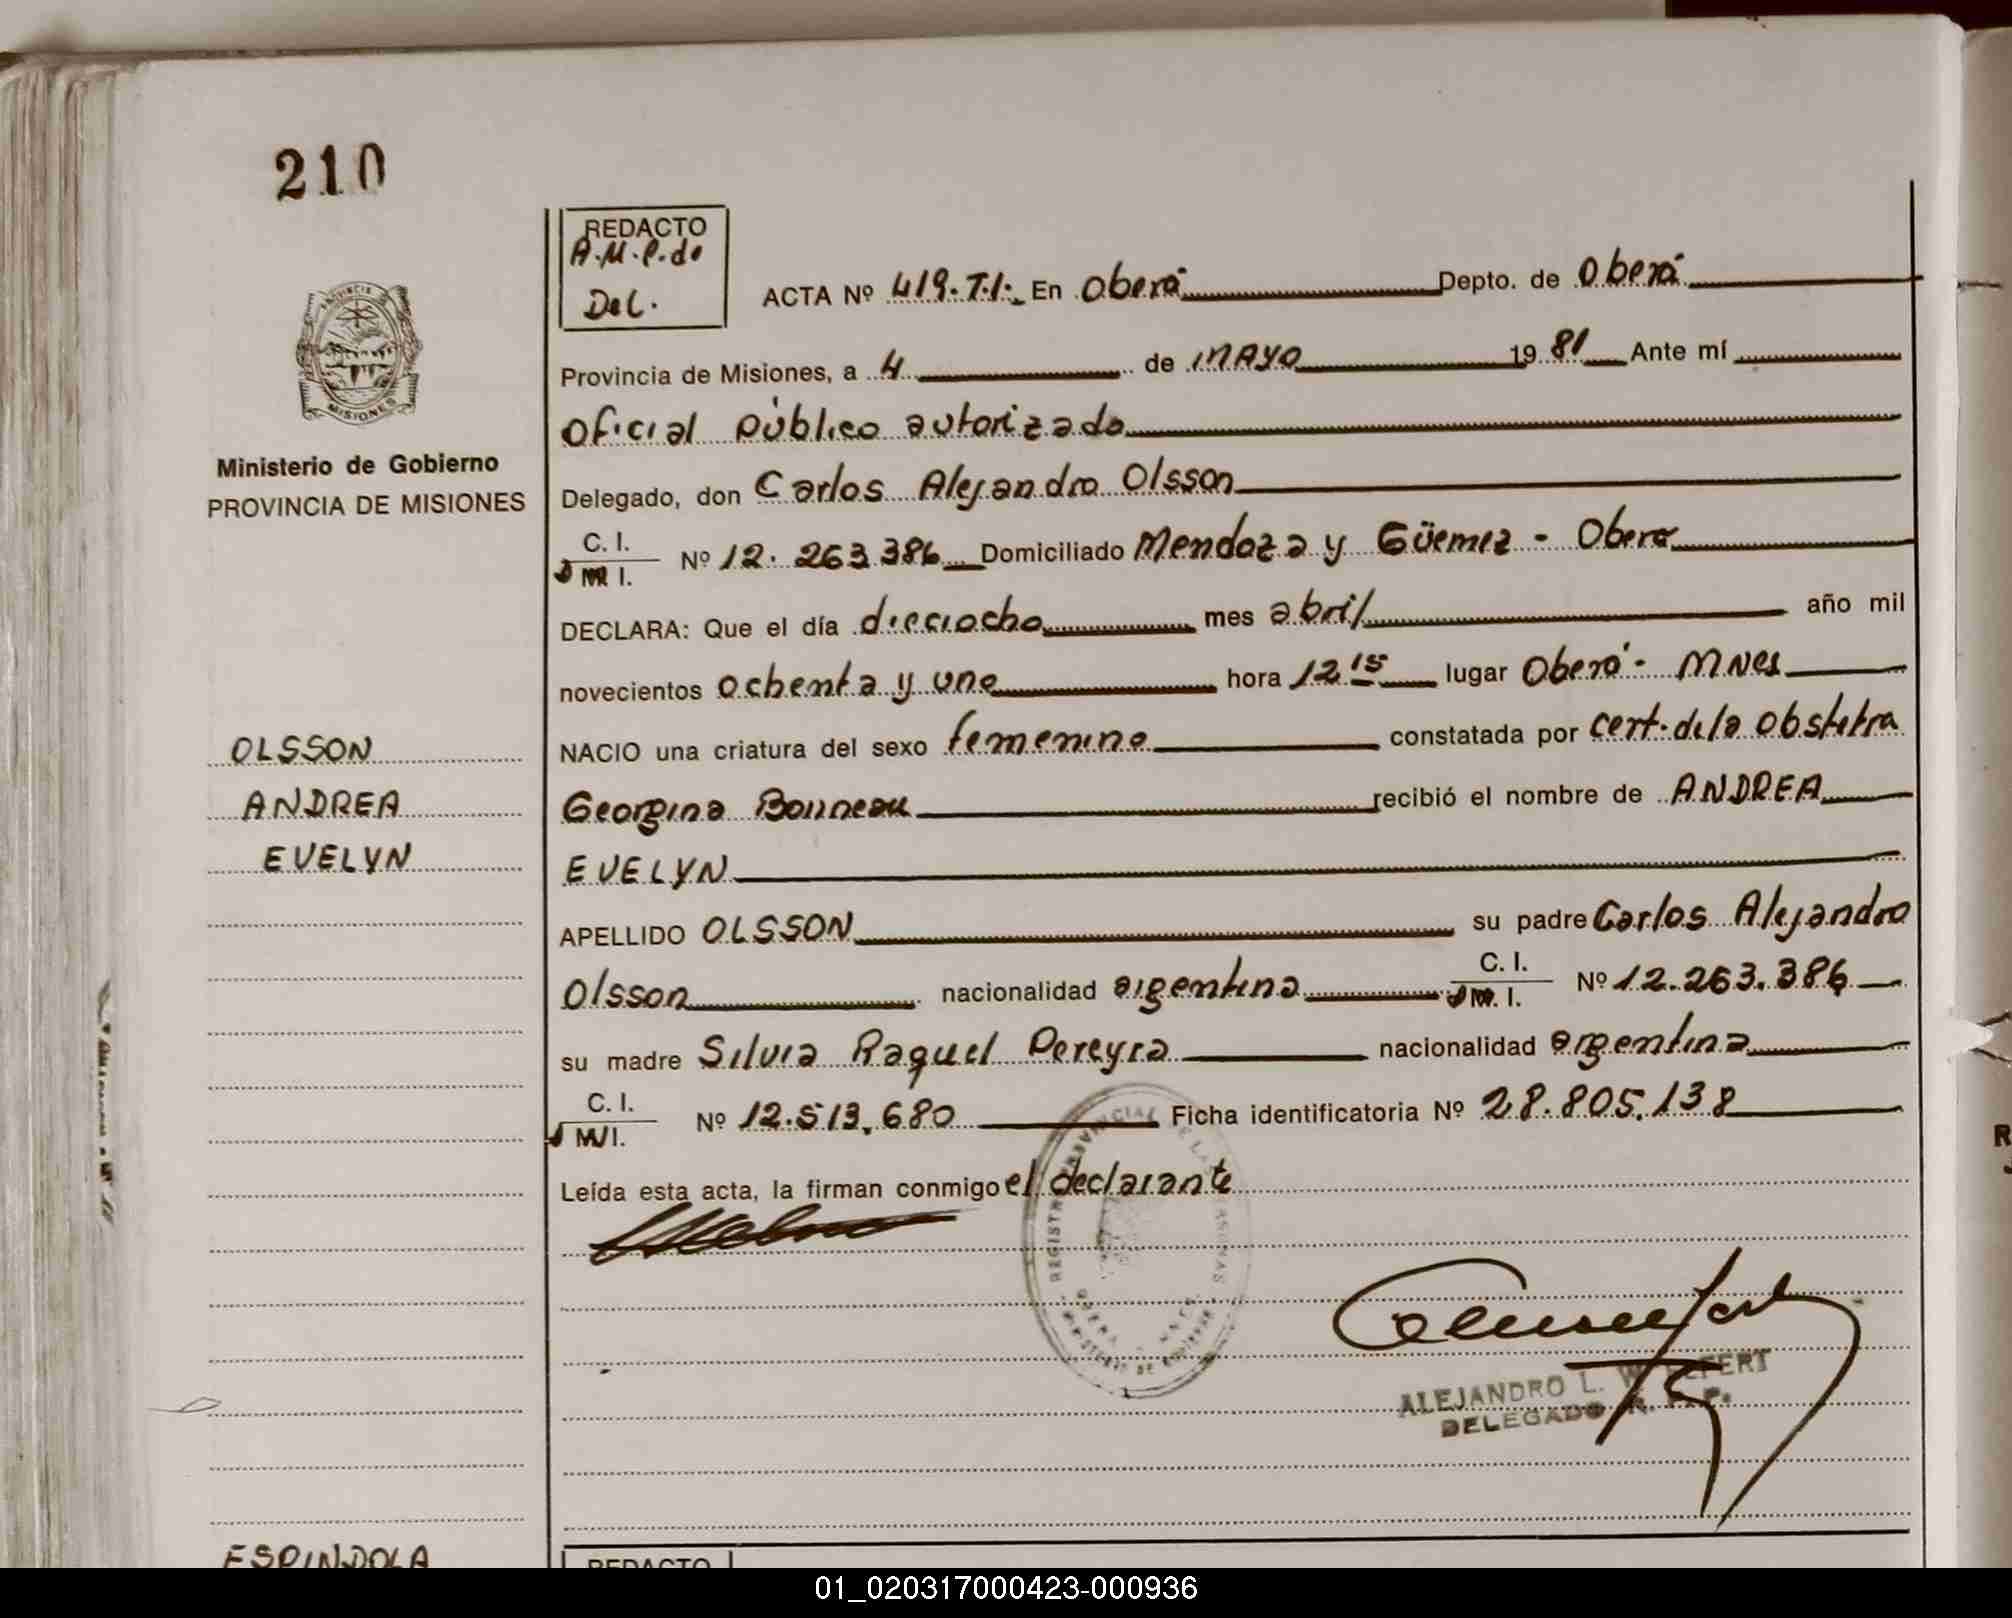 210
REDACTO
A.M.P.de
Del.
ACTA Nº 419.T.I. En Oberá Depto. de Oberá
Provincia de Misiones, a 4 de MAYO 1981 Ante mí
Oficial público autorizado
Delegado, don Carlos Alejandro Olsson
C. I.
D M I. Nº 12.263.386 Domiciliado Mendoza y Güemez - Oberá
DECLARA: Que el día dieciocho mes abril año mil
novecientos ochenta y uno hora 12 15 lugar Oberá - Mnes
NACIO una criatura del sexo femenino constatada por cert. de la obstetra
Georgina Bonneau recibió el nombre de ANDREA
EVELYN
APELLIDO OLSSON su padre Carlos Alejandro
Olsson nacionalidad argentina C. I. D M. I. Nº 12.263.386
su madre Silvia Raquel Pereyra nacionalidad argentina
C. I.
D M I. Nº 12.513.680 Ficha identificatoria Nº 28.805.138
Leída esta acta, la firman conmigo el declarante
Ministerio de Gobierno
PROVINCIA DE MISIONES
MISIONES
OLSSON
ANDREA
EVELYN
REGISTRO PROVINCIAL DE LAS PERSONAS
ALEJANDRO L.
DELEGADO R. P. P.
ESPINDOLA
REDACTO
01_020317000423-000936